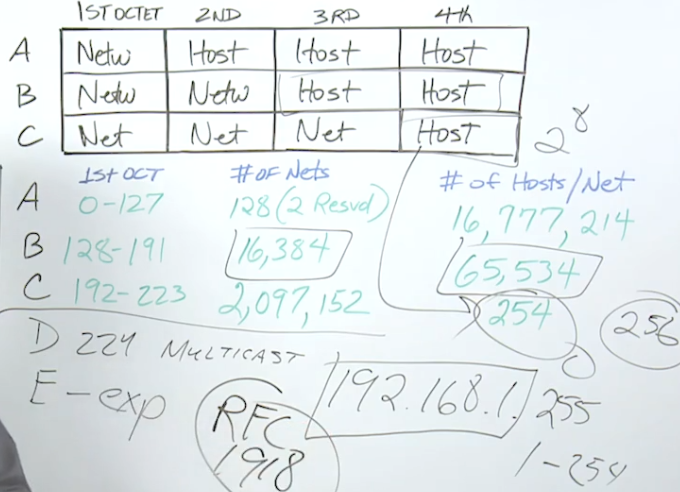 1ST OCTET 2ND 3RD 4th
A Netw Host Host Host
B Netw Netw Host Host
C Net Net Net Host 2^8
1ST OCT # OF Nets # of Hosts/Net
A 0-127 128 (2 Resvd) 16,777,214
B 128-191 16,384 65,534
C 192-223 2,097,152 254 256
D 224 MULTICAST 0
E-exp RFC 1918 192.168.1. 255
1-254